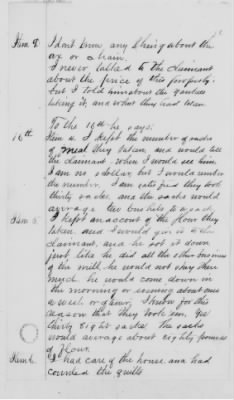 Item 8. I don't know any thing about the
ox or chain.
I never talked to the claimant
about the price of this property.
but I told him about the yankees
taking it, and what they had taken.
To the 16th he says:
16th
Item 4. I kept the number of sacks
of meal they taken, and would tell
the claimant when I would see him.
I am no scholar, but I would number
the number. I am satisfied they took
thirty sacks, and the sacks would
average two bushels to a sack.
Item 5. I kept an account of the flour they
taken, and I would give it to the
claimant, and he set it down
just like he did all the other business
of the mill, he would not stay there
much, he would come down in
the morning or evening about once
a week or ginning, I know for this
reason that they took
thirty eight sacks. the sacks
would average about eighty pounds
of flour.
Item 6. I had care of the house and had
counted the quilts